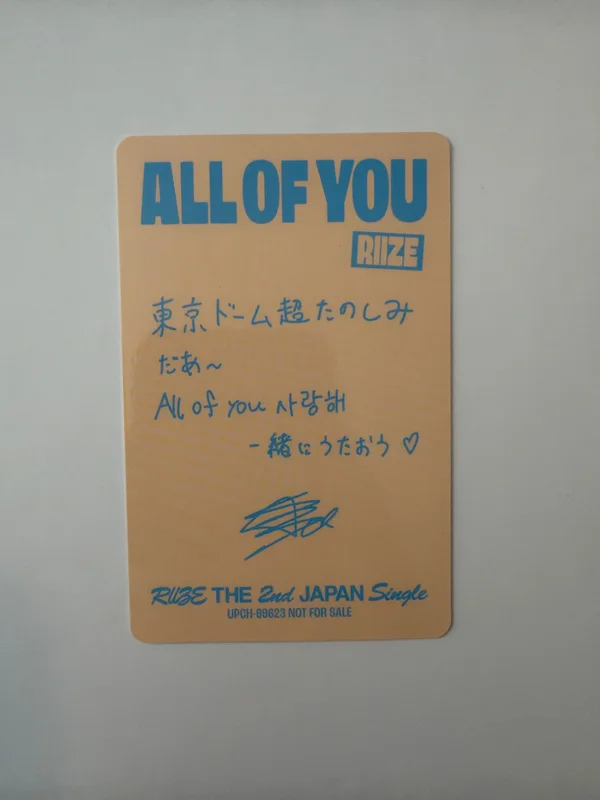 ALL OF YOU
RIIZE
東京ドーム超たのしみ
だあ〜
All of you 사랑해
一緒にうたおう♡
RIIZE THE 2nd JAPAN Single
UPCH-89623 NOT FOR SALE